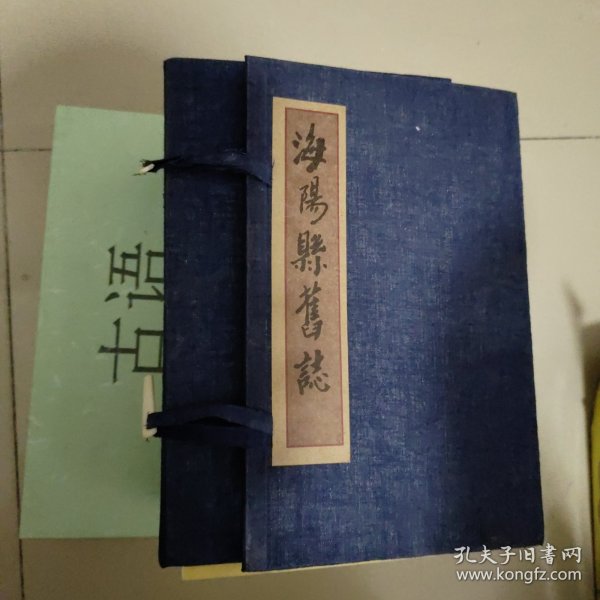 海陽縣舊誌
古语
孔夫子旧书网
www.kongfz.com